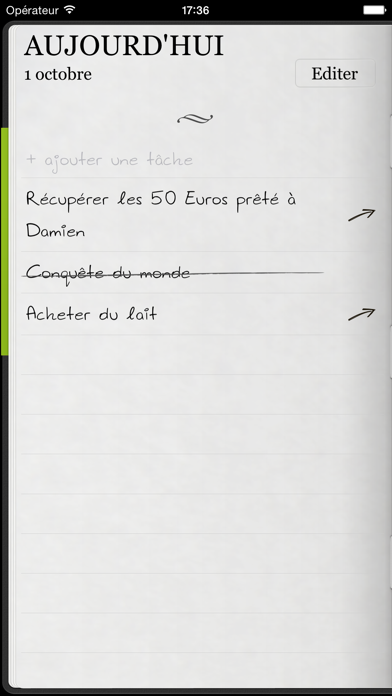 Opérateur 17:36
AUJOURD'HUI
1 octobre
Editer
+ ajouter une tâche
Récupérer les 50 Euros prêté à
Damien
Conquête du monde
Acheter du lait